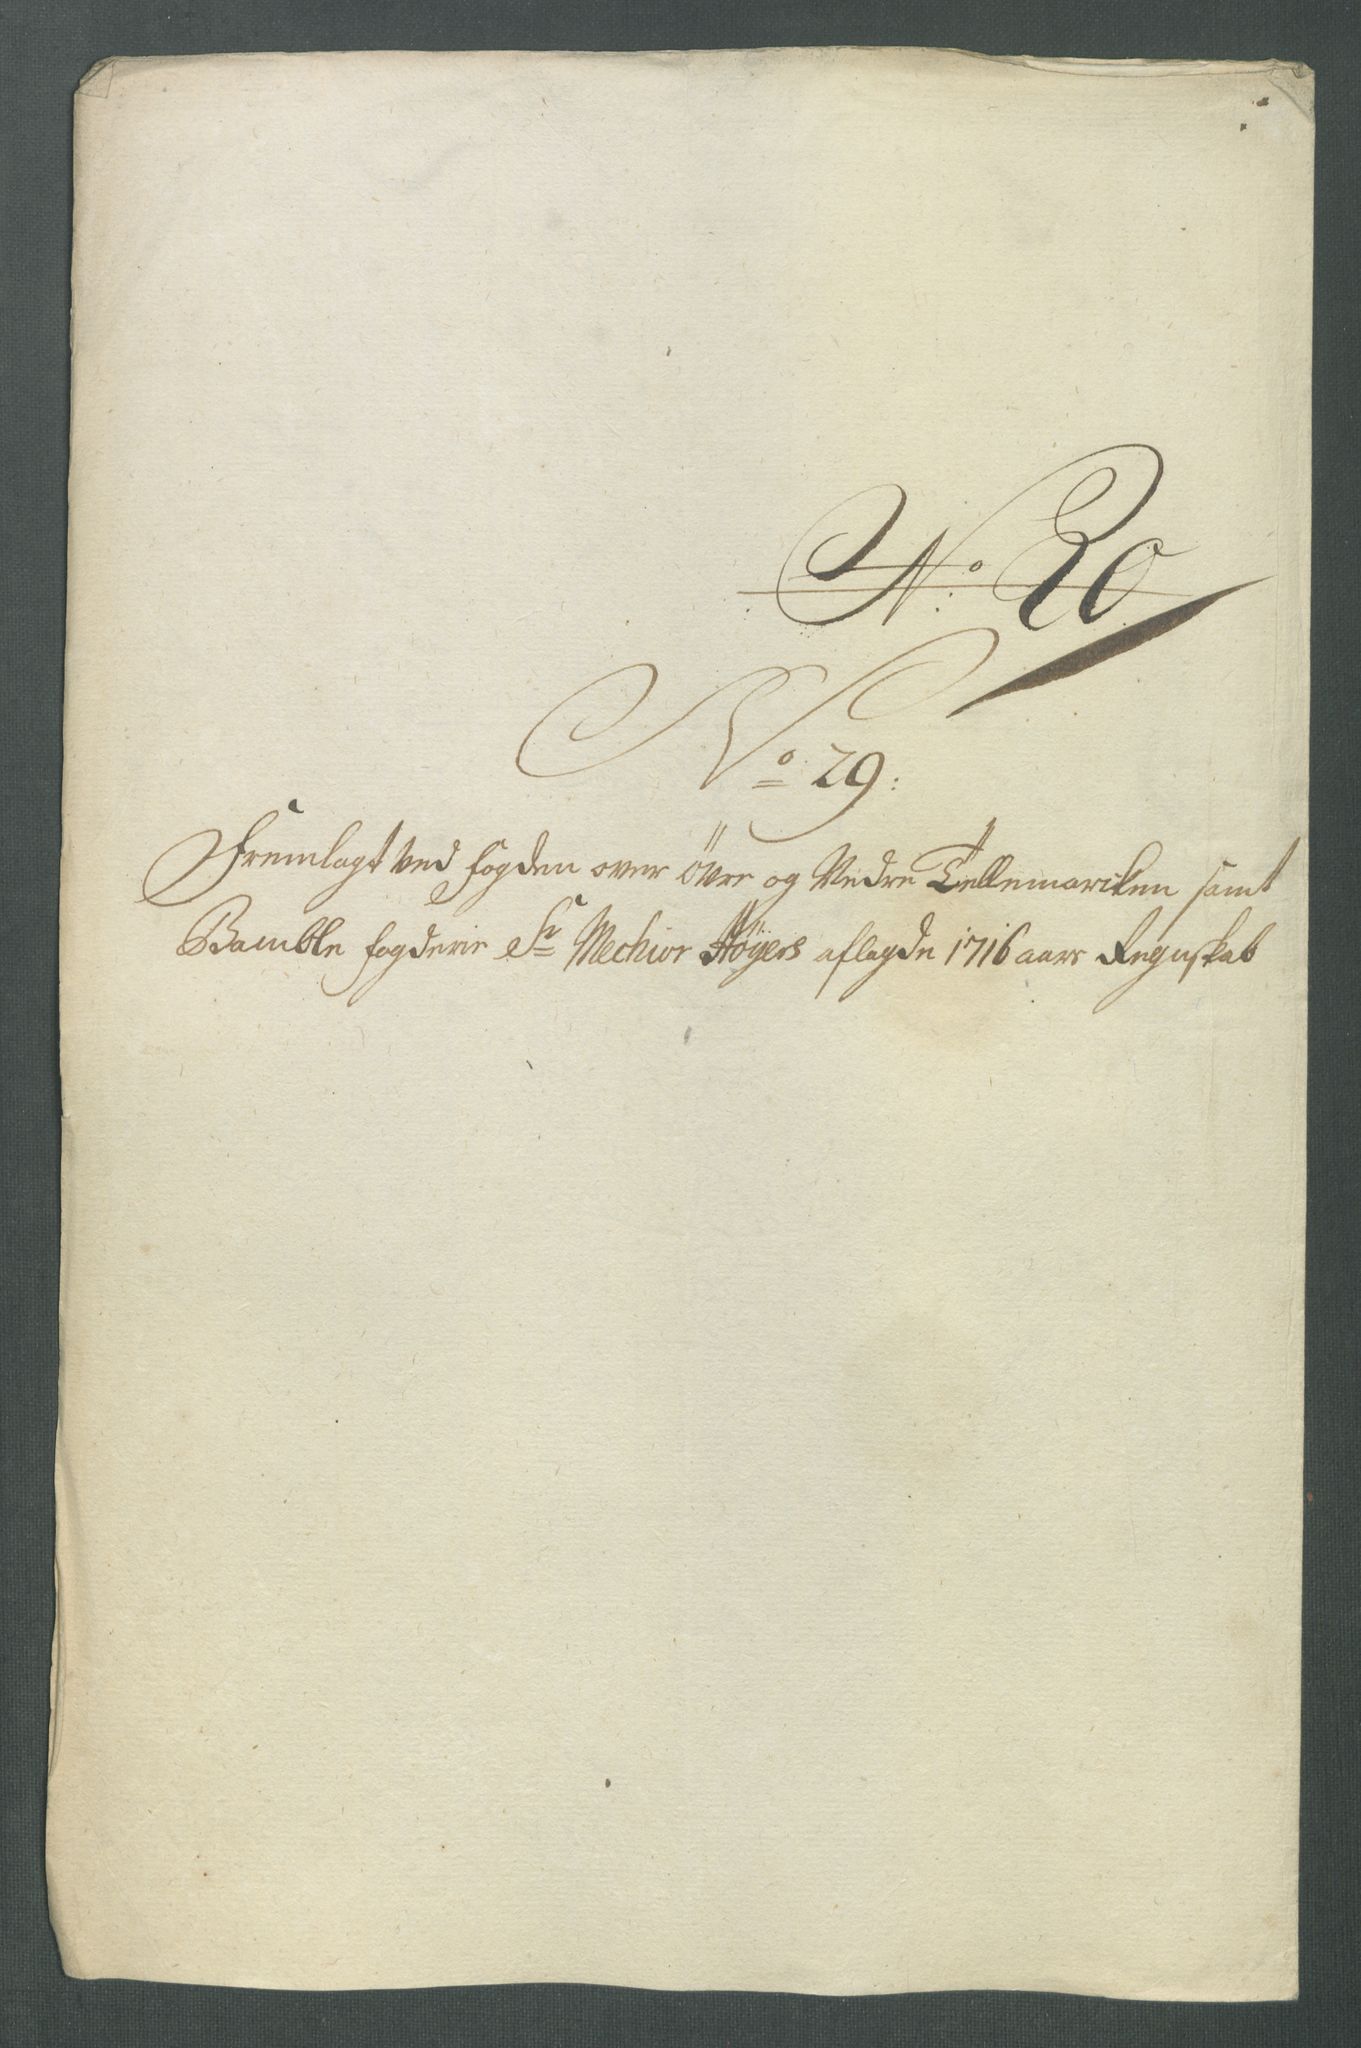 No: 20
No 29:
Fremlagt ved fogden over öwre og Nedre Tellemarcken samt
Bamble fogderie Sr Mechior Høyers aflagde 1716 aars Regnskab